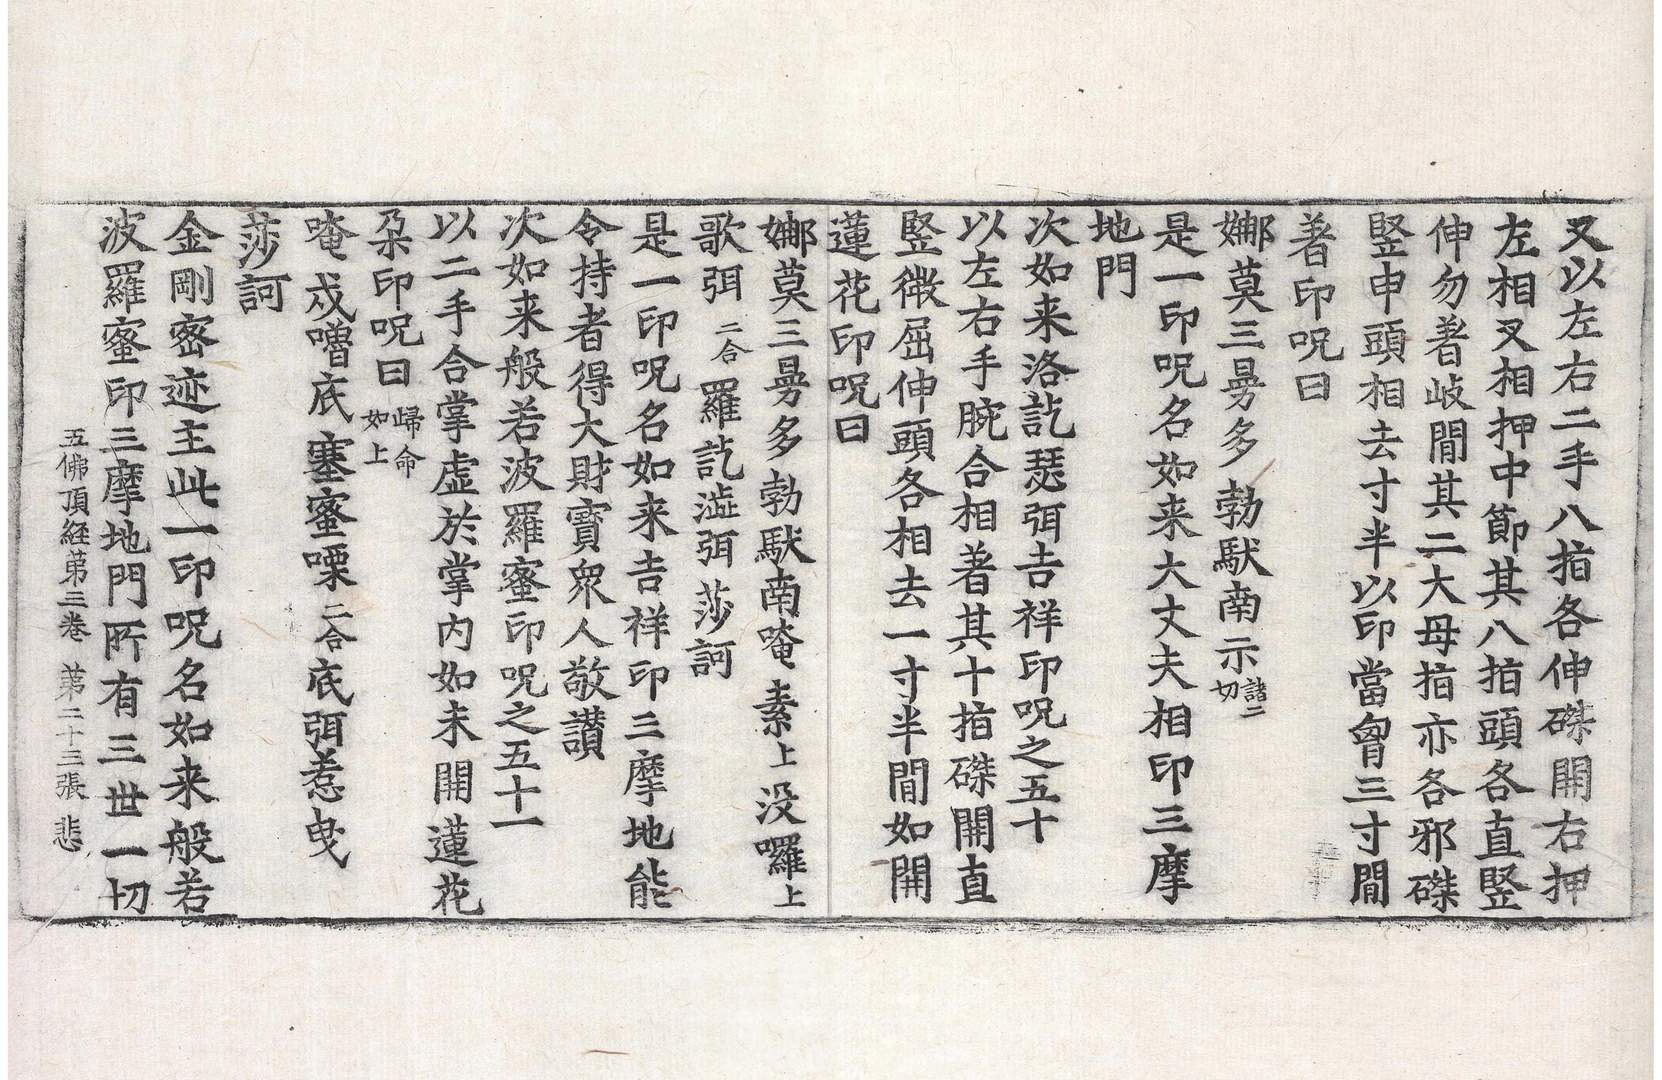 又以左右二手八指各伸磔開右押
左相叉相押中節其八指頭各直竪
伸勿著岐間其二大母指亦各邪磔
竪申頭相去寸半以印當胷三寸間
著印呪曰
娜莫三曼多勃馱南示諸二切
是一印呪名如来大丈夫相印三摩
地門
次如来洛訖瑟弭吉祥印呪之五十
以左右手腕合相著其十指磔開直
竪微屈伸頭各相去一寸半間如開
蓮花印呪曰
娜莫三曼多勃馱南唵素上没囉上
歌弭二合羅訖澁弭莎訶
是一印呪名如来吉祥印三摩地能
令持者得大財寳衆人敬讃
次如来般若波羅蜜印呪之五十一
以二手合掌虚於掌内如未開蓮花
朶印呪曰歸命如上
唵戍嚕底塞蜜㗚二合底弭惹曳
莎訶
金剛密迹主此一印呪名如来般若
波羅蜜印三摩地門所有三世一切
五佛頂経苐三卷 苐二十三張 悲